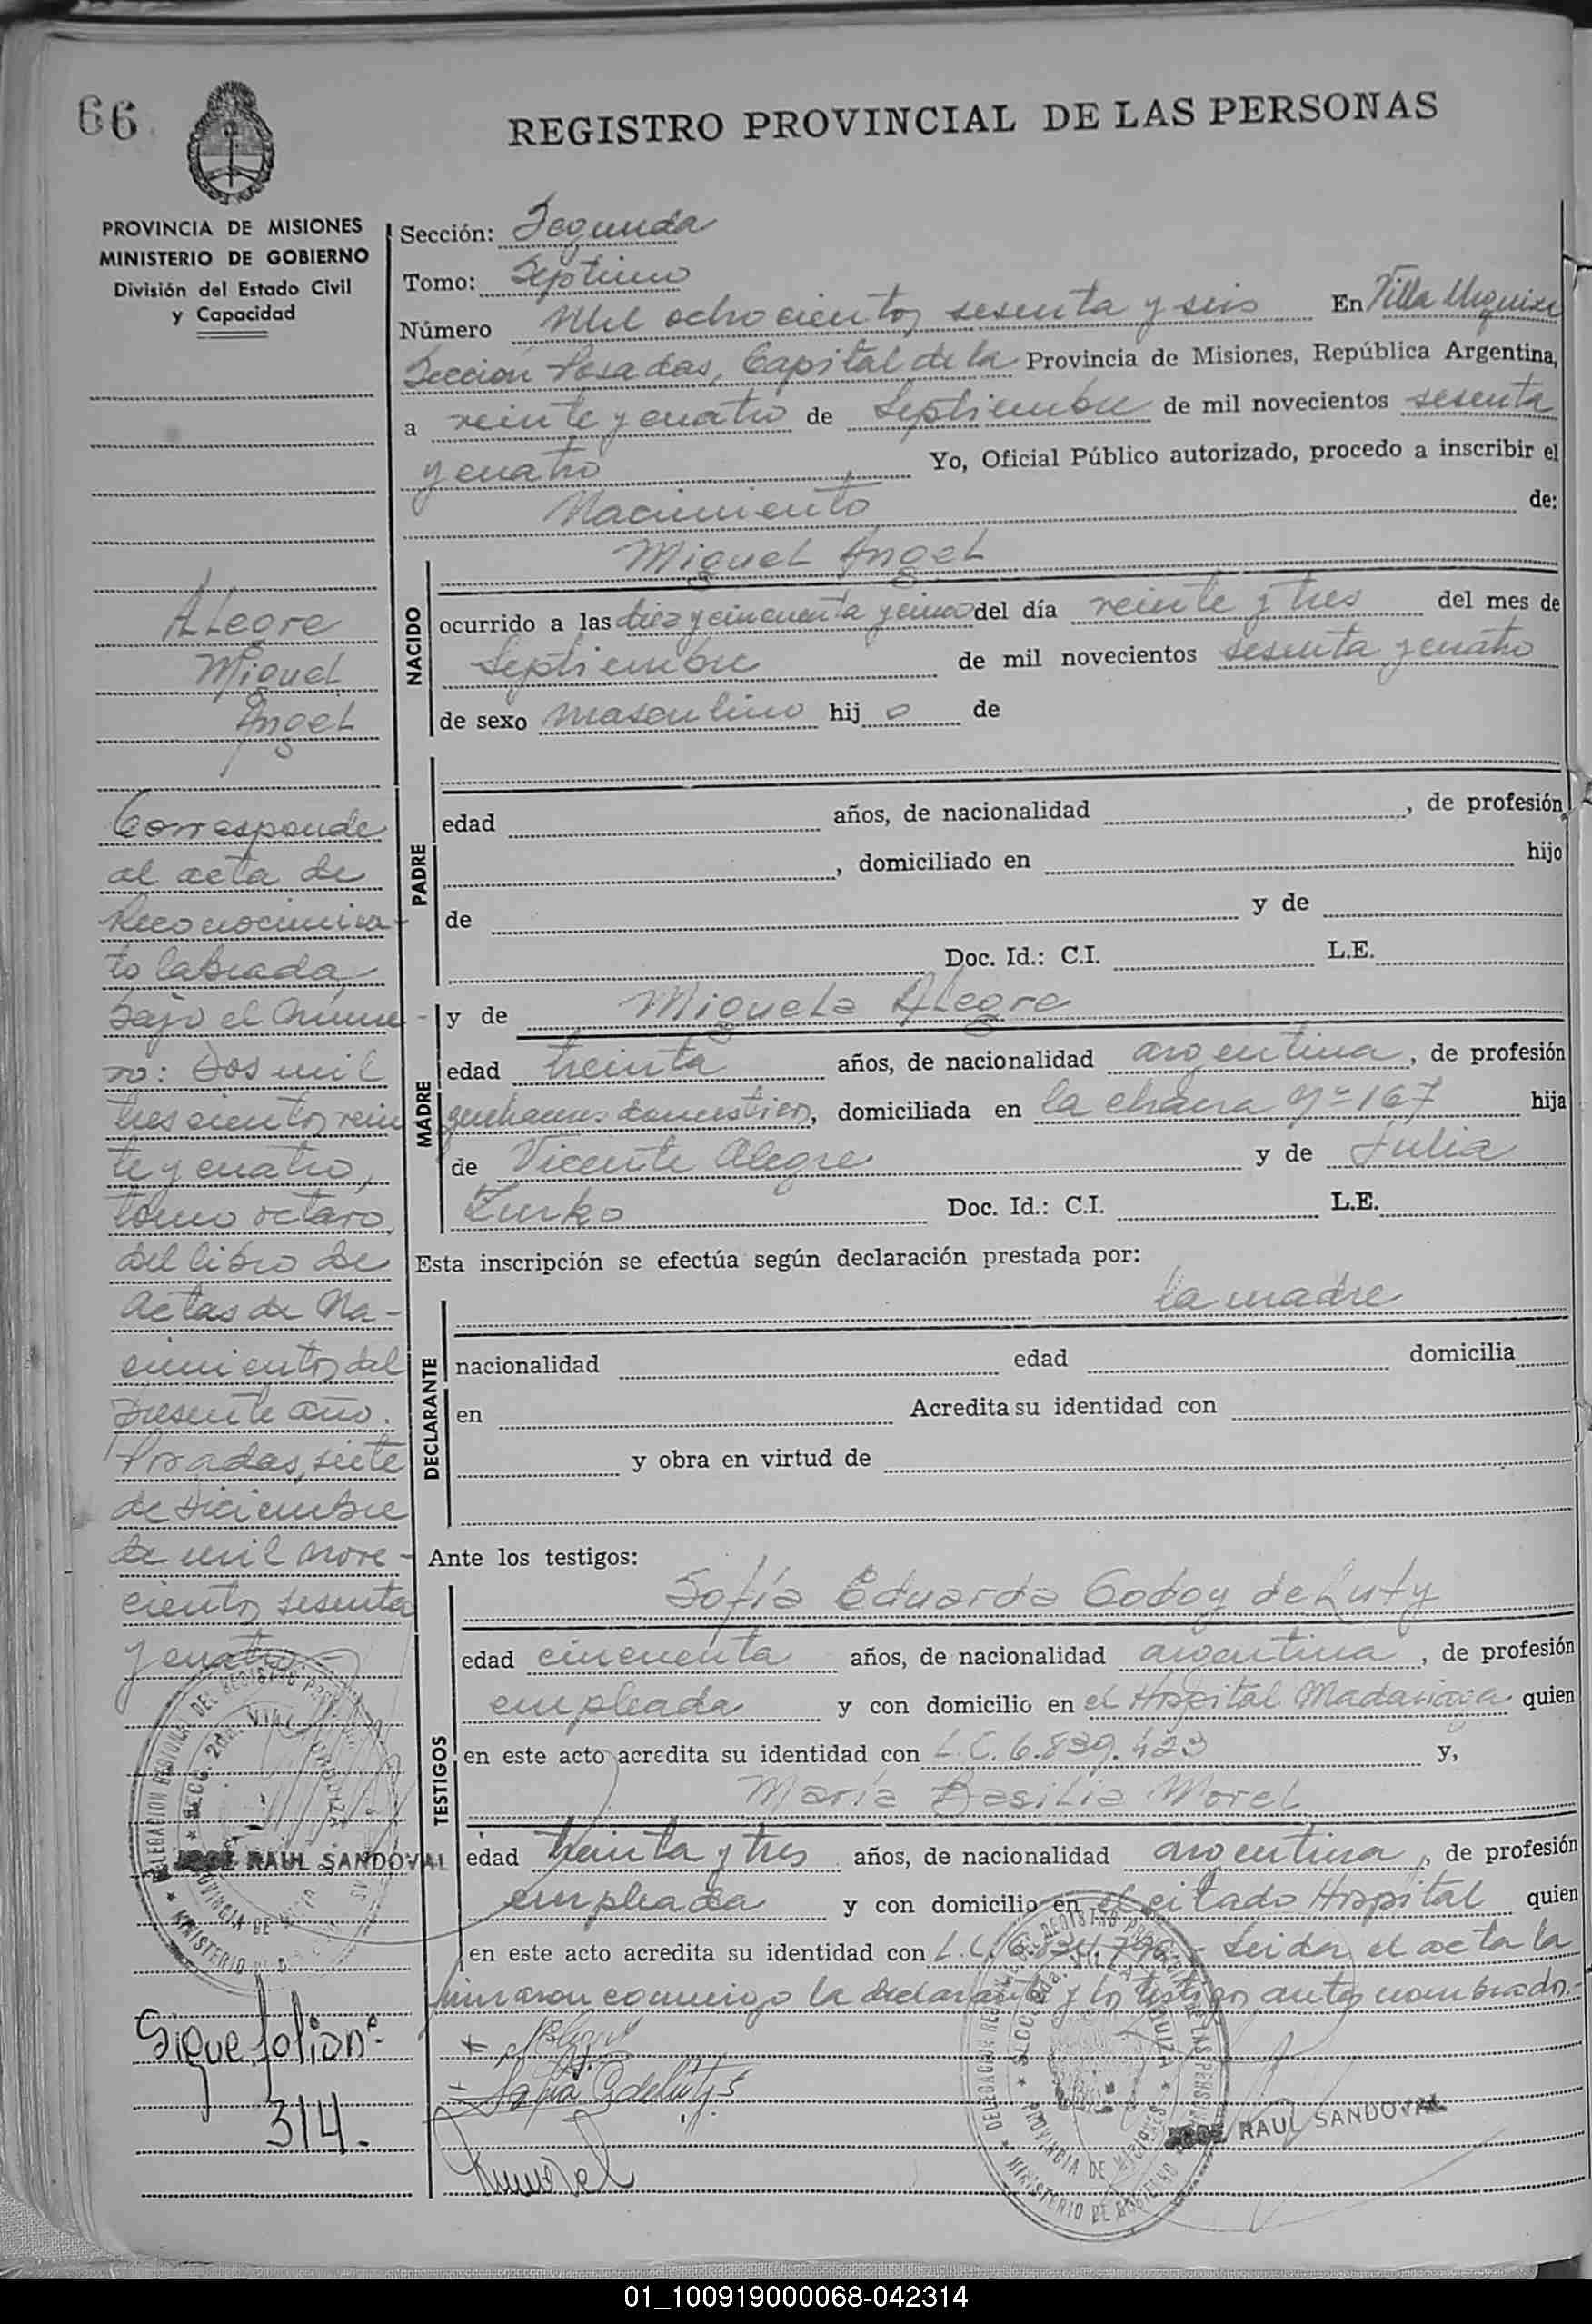 66
REGISTRO PROVINCIAL DE LAS PERSONAS
PROVINCIA DE MISIONES
MINISTERIO DE GOBIERNO
División del Estado Civil
y Capacidad
Sección: Segunda
Tomo: Septimo
Número Mil ochocientos sesenta y seis En Villa Urquiza
Sección Posadas, Capital de la Provincia de Misiones, República Argentina,
a veinte y cuatro de Septiembre de mil novecientos sesenta
y cuatro Yo, Oficial Público autorizado, procedo a inscribir el
Nacimiento de:
NACIDO
Miguel Angel
ocurrido a las diez y cincuenta y cinco del día veinte y tres del mes de
Septiembre de mil novecientos sesenta y cuatro
de sexo masculino hij o de
PADRE
edad años, de nacionalidad , de profesión
, domiciliado en hijo
de y de
Doc. Id.: C.I. L.E.
MADRE
y de Miguela Alegre
edad treinta años, de nacionalidad argentina, de profesión
domesticos, domiciliada en la chacra Nº 167 hija
de Vicente Alegre y de Julia
Zurko Doc. Id.: C.I. L.E.
Esta inscripción se efectúa según declaración prestada por:
DECLARANTE
La madre
nacionalidad edad domicilia
en Acredita su identidad con
y obra en virtud de
Ante los testigos:
TESTIGOS
Sofía Eduarda Godoy de Luty
edad cincuenta años, de nacionalidad argentina, de profesión
empleada y con domicilio en el Hospital Madariaga quien
en este acto acredita su identidad con L.C. 6.839.423 y,
María Basilia Morel
edad treinta y tres años, de nacionalidad argentina, de profesión
empleada y con domicilio en el citado Hospital quien
en este acto acredita su identidad con L.C. Leida el acta la
firmaron conmigo la declarante y los testigos antes nombrados.-
JOSE RAUL SANDOVAL
Alegre
Miguel
Angel
Corresponde
al acta de
Reconocimien-
to labrada
bajo el Núme-
ro: Dos mil
trescientos vein
te y cuatro,
tomo octavo,
del libro de
Actas de Na-
cimientos del
presente año.
Posadas, siete
de Diciembre
de mil nove-
cientos sesenta
y cuatro.-
JOSE RAUL SANDOVAL
Sigue folio nº
314.-
01_100919000068-042314